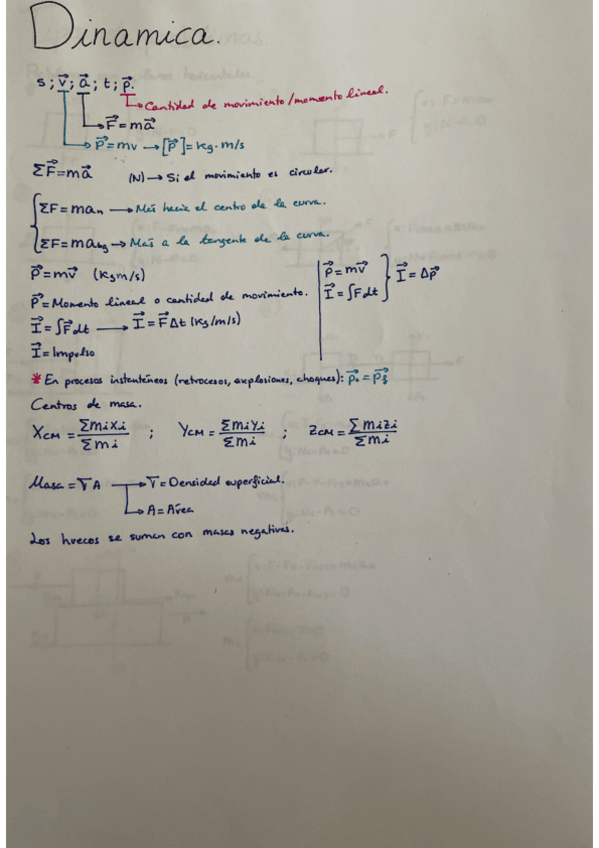 Dinamica.
s ; v⃗ ; a⃗ ; t ; p⃗.
→ Cantidad de movimiento/momento lineal.
→ F⃗ = ma⃗
→ p⃗ = mv → [p⃗] = kg·m/s
ΣF⃗ = ma⃗ (N) → Si el movimiento es circular.
ΣF = man → Mas hacia el centro de la curva.
ΣF = matg → Mas a la tangente de la curva.
p⃗ = mv⃗ (Kgm/s)
p⃗ = Momento lineal o cantidad de movimiento.
I⃗ = ∫F⃗dt → I⃗ = F⃗Δt (Kg/m/s)
I⃗ = Impulso
p⃗ = mv⃗
I⃗ = ∫Fdt } I⃗ = Δp⃗
* En procesos instantáneos (retrocesos, explosiones, choques): p⃗₀ = p⃗f
Centros de masa.
XCM = Σmixi/Σmi ; YCM = Σmiyi/Σmi ; ZCM = Σmizi/Σmi
Masa = ∇A → ∇ = Densidad superficial.
→ A = Área
Los huecos se suman con masas negativas.